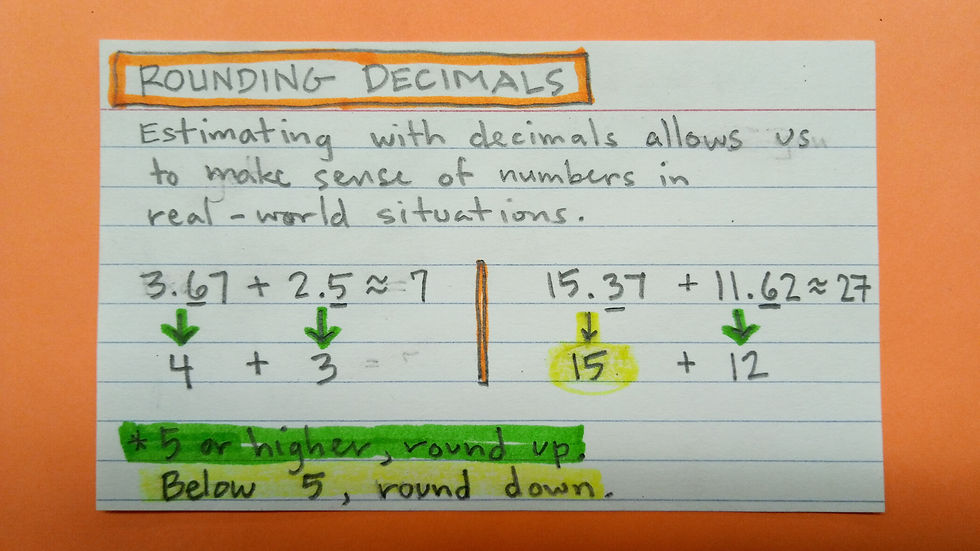 ROUNDING DECIMALS
Estimating with decimals allows us
to make sense of numbers in
real-world situations.
3.67 + 2.5 ≈ 7
4 + 3
15.37 + 11.62 ≈ 27
15 + 12
*5 or higher, round up.
Below 5, round down.